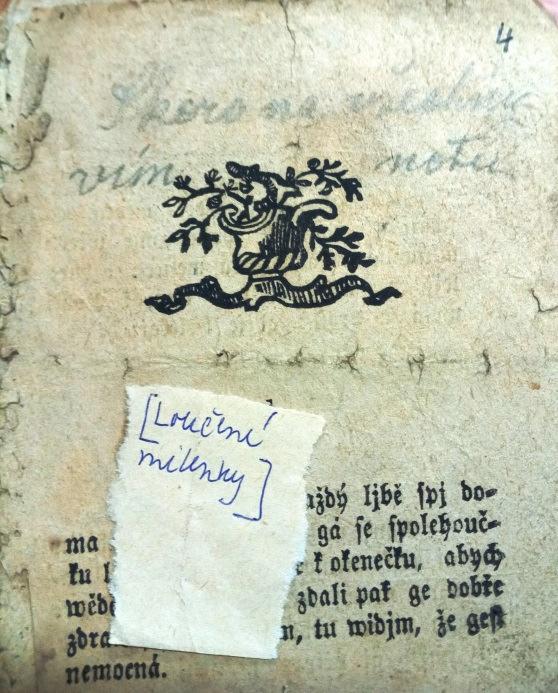 4
Skoro na všechny
vím notu
[Loučení
milenky]
aždý ljbě spj do⸗
ma gá se spolehouč⸗
ku k okenečku, abych
wěd zdali pak ge dobře
zdra n, tu widjm, že gest
nemocná.